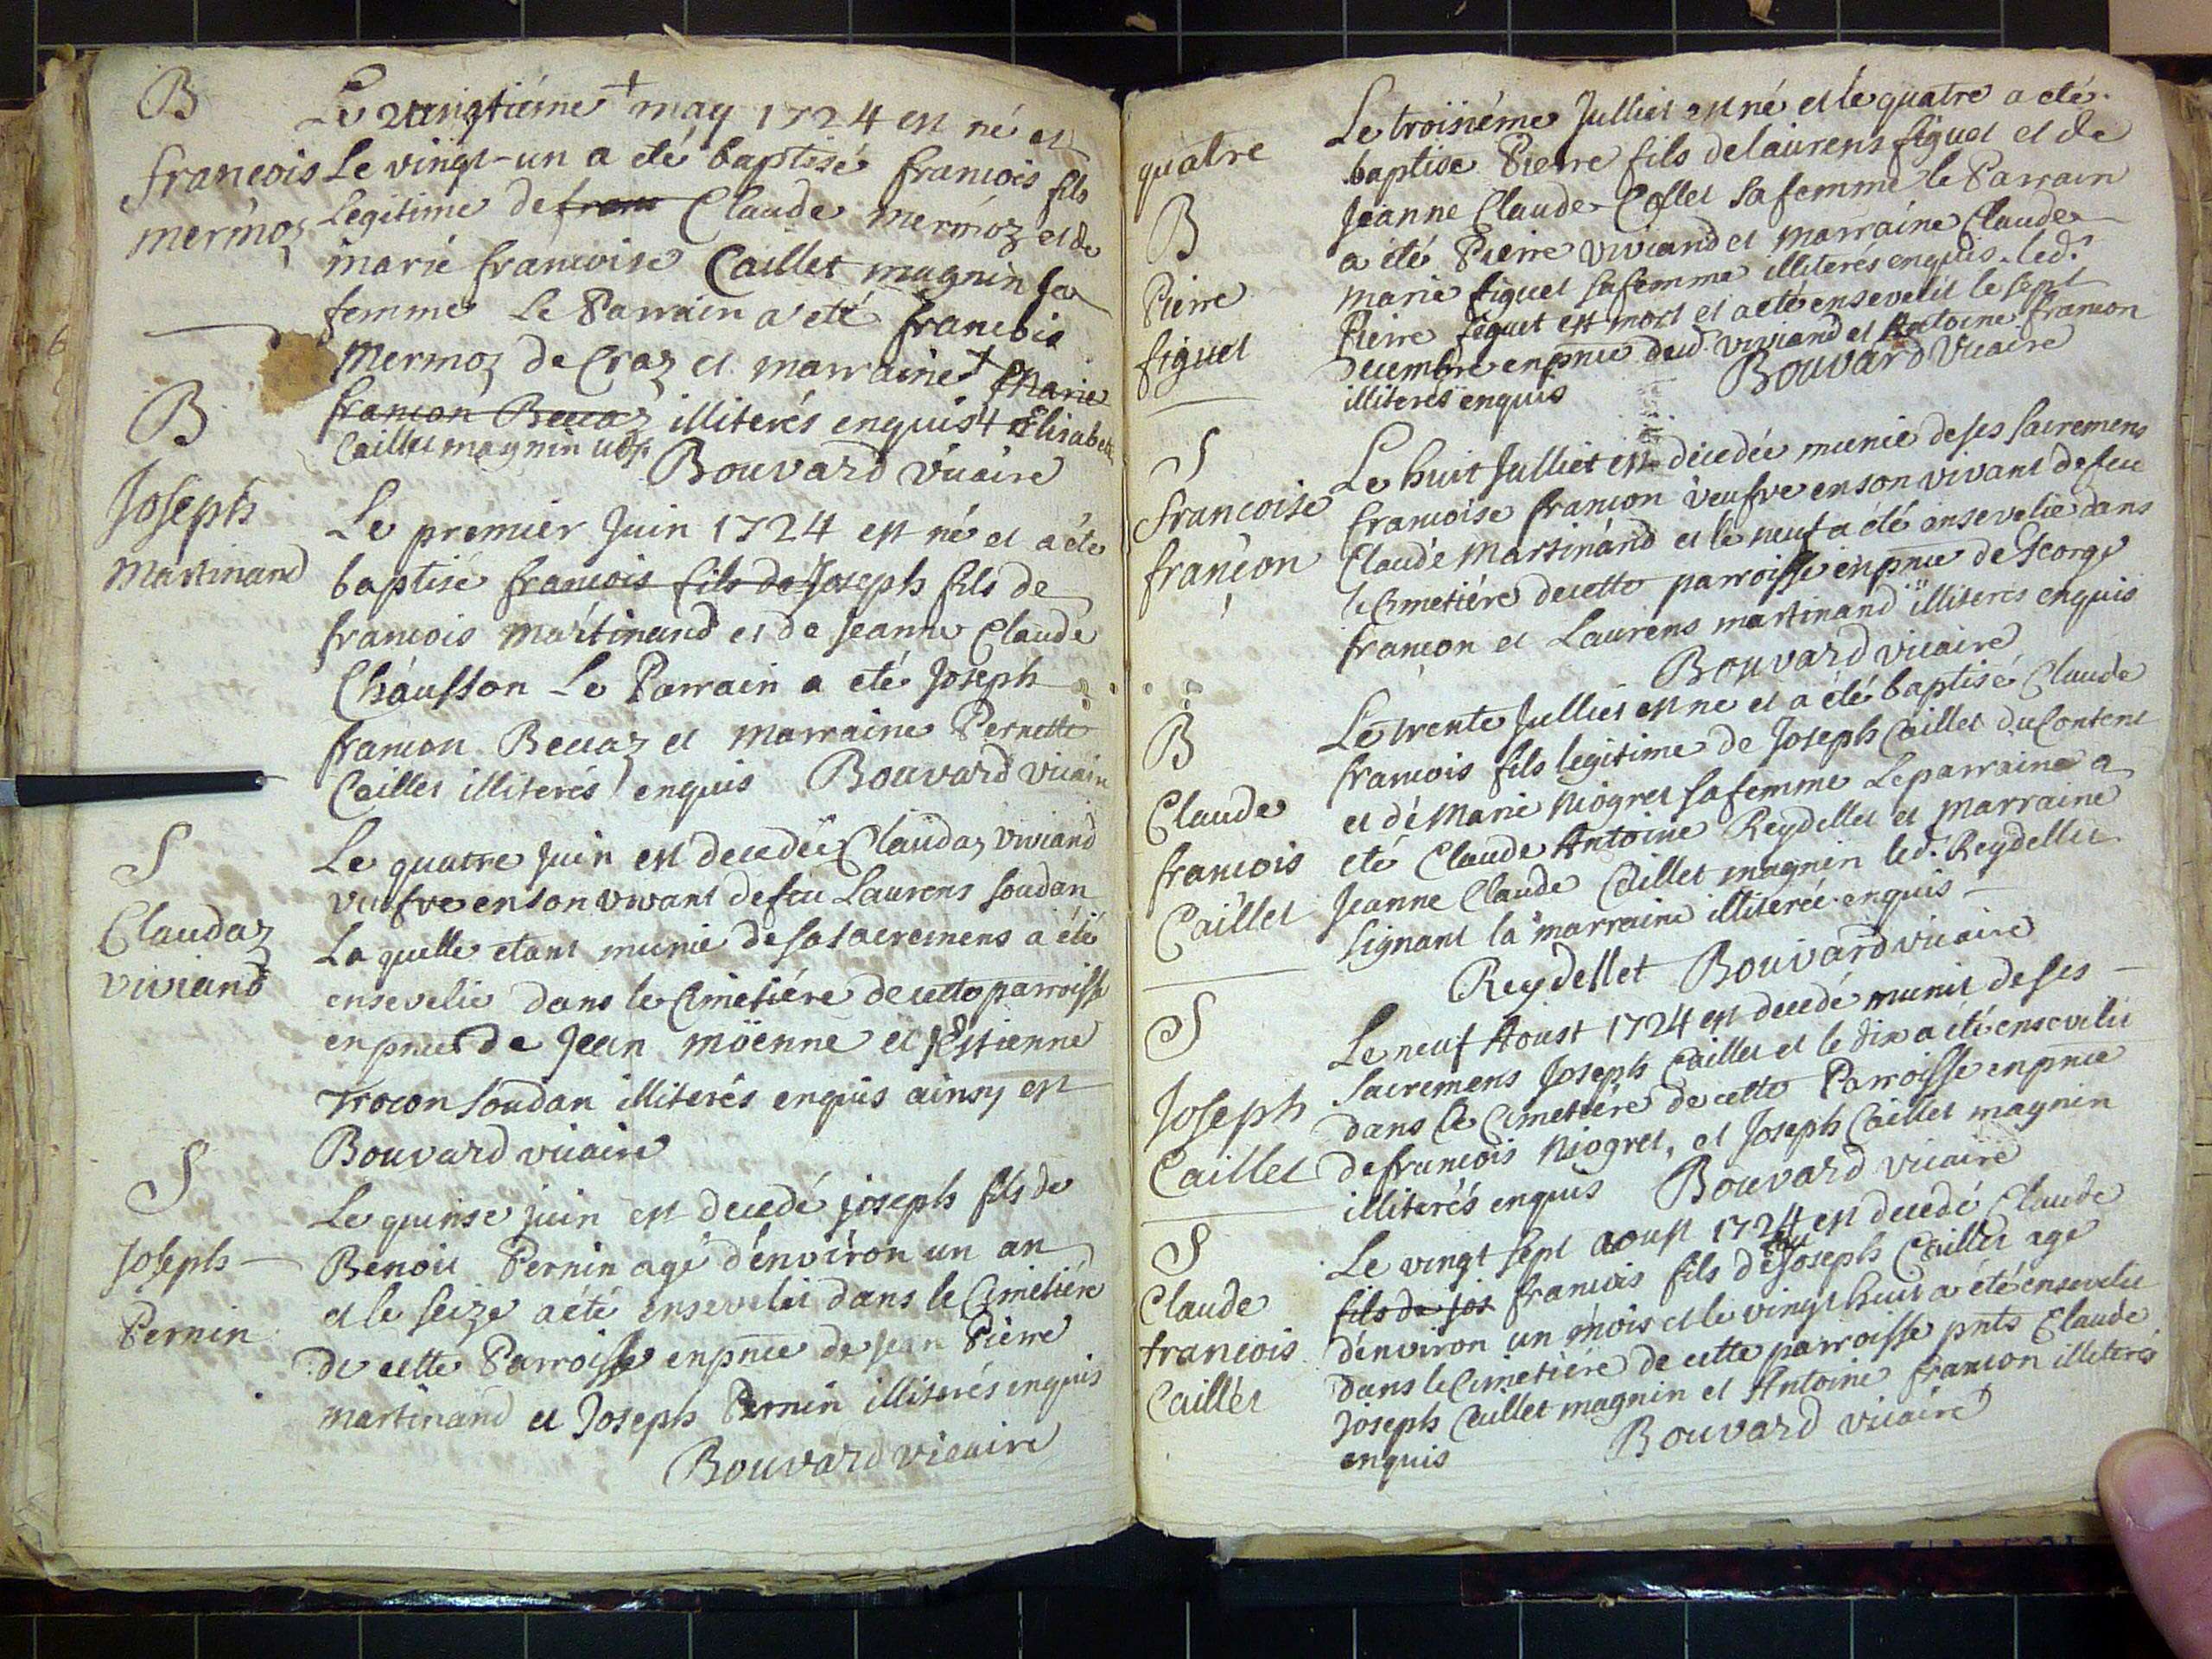 B
francois
mermoz
Le vingtiéme may 1724 est né et
Le vingt-un a eté baptisé francois fils
Legitime de frans Claude mermoz et de
marie francoise Caillet magnin sa
femme Le Parrain a eté francois
Mermoz de Craz et marraine + Marie
francon Beccaz illiterés enquis + Elisabeth
Caillet magnin
Bouvard vicaire
B
Joseph
Martinand
Le premier Juin 1724 est né et a été
baptisé francois fils de Joseph fils de
francois Martinand et de Jeanne Claude
Chausson Le Parrain a eté Joseph
francon Beccaz et Marraine Pernette
Caillet illiterés enquis Bouvard vicaire
S
Claudaz
viviand
Le quatre juin est decedée Claudaz viviand
veufve en son vivant de feu Laurens soudan
La quelle etant munie de sa sacremens a été
ensevelie dans le Cimetiére de cette parroisse
en pnce de Jean möenne et Estienne
Trocon soudan illiterés enquis ainsy est
Bouvard vicaire
S
Joseph
Pernin
Le quinse juin est decedé joseph fils de
Benoit Pernin agé d'environ un an
et le seize a été ensevelit dans le Cimetiére
de cette Parroisse en pnce de Jean Pierre
martinand et Joseph Pernin illiterés enquis
Bouvard vicaire
quatre
B
Pierre
figuet
Le troisiéme Julliet est né et le quatre a eté
baptise Pierre fils de laurens figuet et de
Jeanne Claude Collet sa femme le Parrain
a été Pierre viviand et marraine Claude
marie figuet sa femme illiterés enquis. led.
Pierre figuet est mort et a eté ensevelit le sept
decembre en pnce dud. viviand et Antoine francon
illiterés enquis Bouvard vicaire
S
francoise
françon
Le huit Julliet est decedée munie de ses sacremens
francoise francon veufve en son vivant de feu
Claude Martinand et le neuf a été ensevelie dans
le Cimetiére de cette parroisse en pnce de George
françon et Laurens martinand illiterés enquis
Bouvard vicaire
B
Claude
francois
Caillet
Le trente Julliet est ne et a été baptisé Claude
francois fils legitime de Joseph Caillet du Content
et de Marie Niogret sa femme Le parraine a
eté Claude Antoine Reydellet et marraine
Jeanne Claude Caillet magnin led. Reydellet
signant la marraine illiterée enquis
Reydellet Bouvard vicaire
S
Joseph
Caillet
Le neuf Aoust 1724 est decedé munit de ses
sacremens Joseph Caillet et le dix a été ensevelit
dans le Cimetiére de cette Parroisse en pnce
de francois Niogret, et Joseph Caillet magnin
illiterés enquis Bouvard vicaire
S
Claude
francois
Caillet
Le vingt sept aoust 1724 est decedé Claude
fils de jos francois fils de feu Joseph Caillet agé
d'environ un mois et le vingt huit a été ensevelit
dans le Cimetiére de cette parroisse pnts Claude
Joseph Caillet magnin et Antoine francon illiterés
enquis Bouvard vicaire